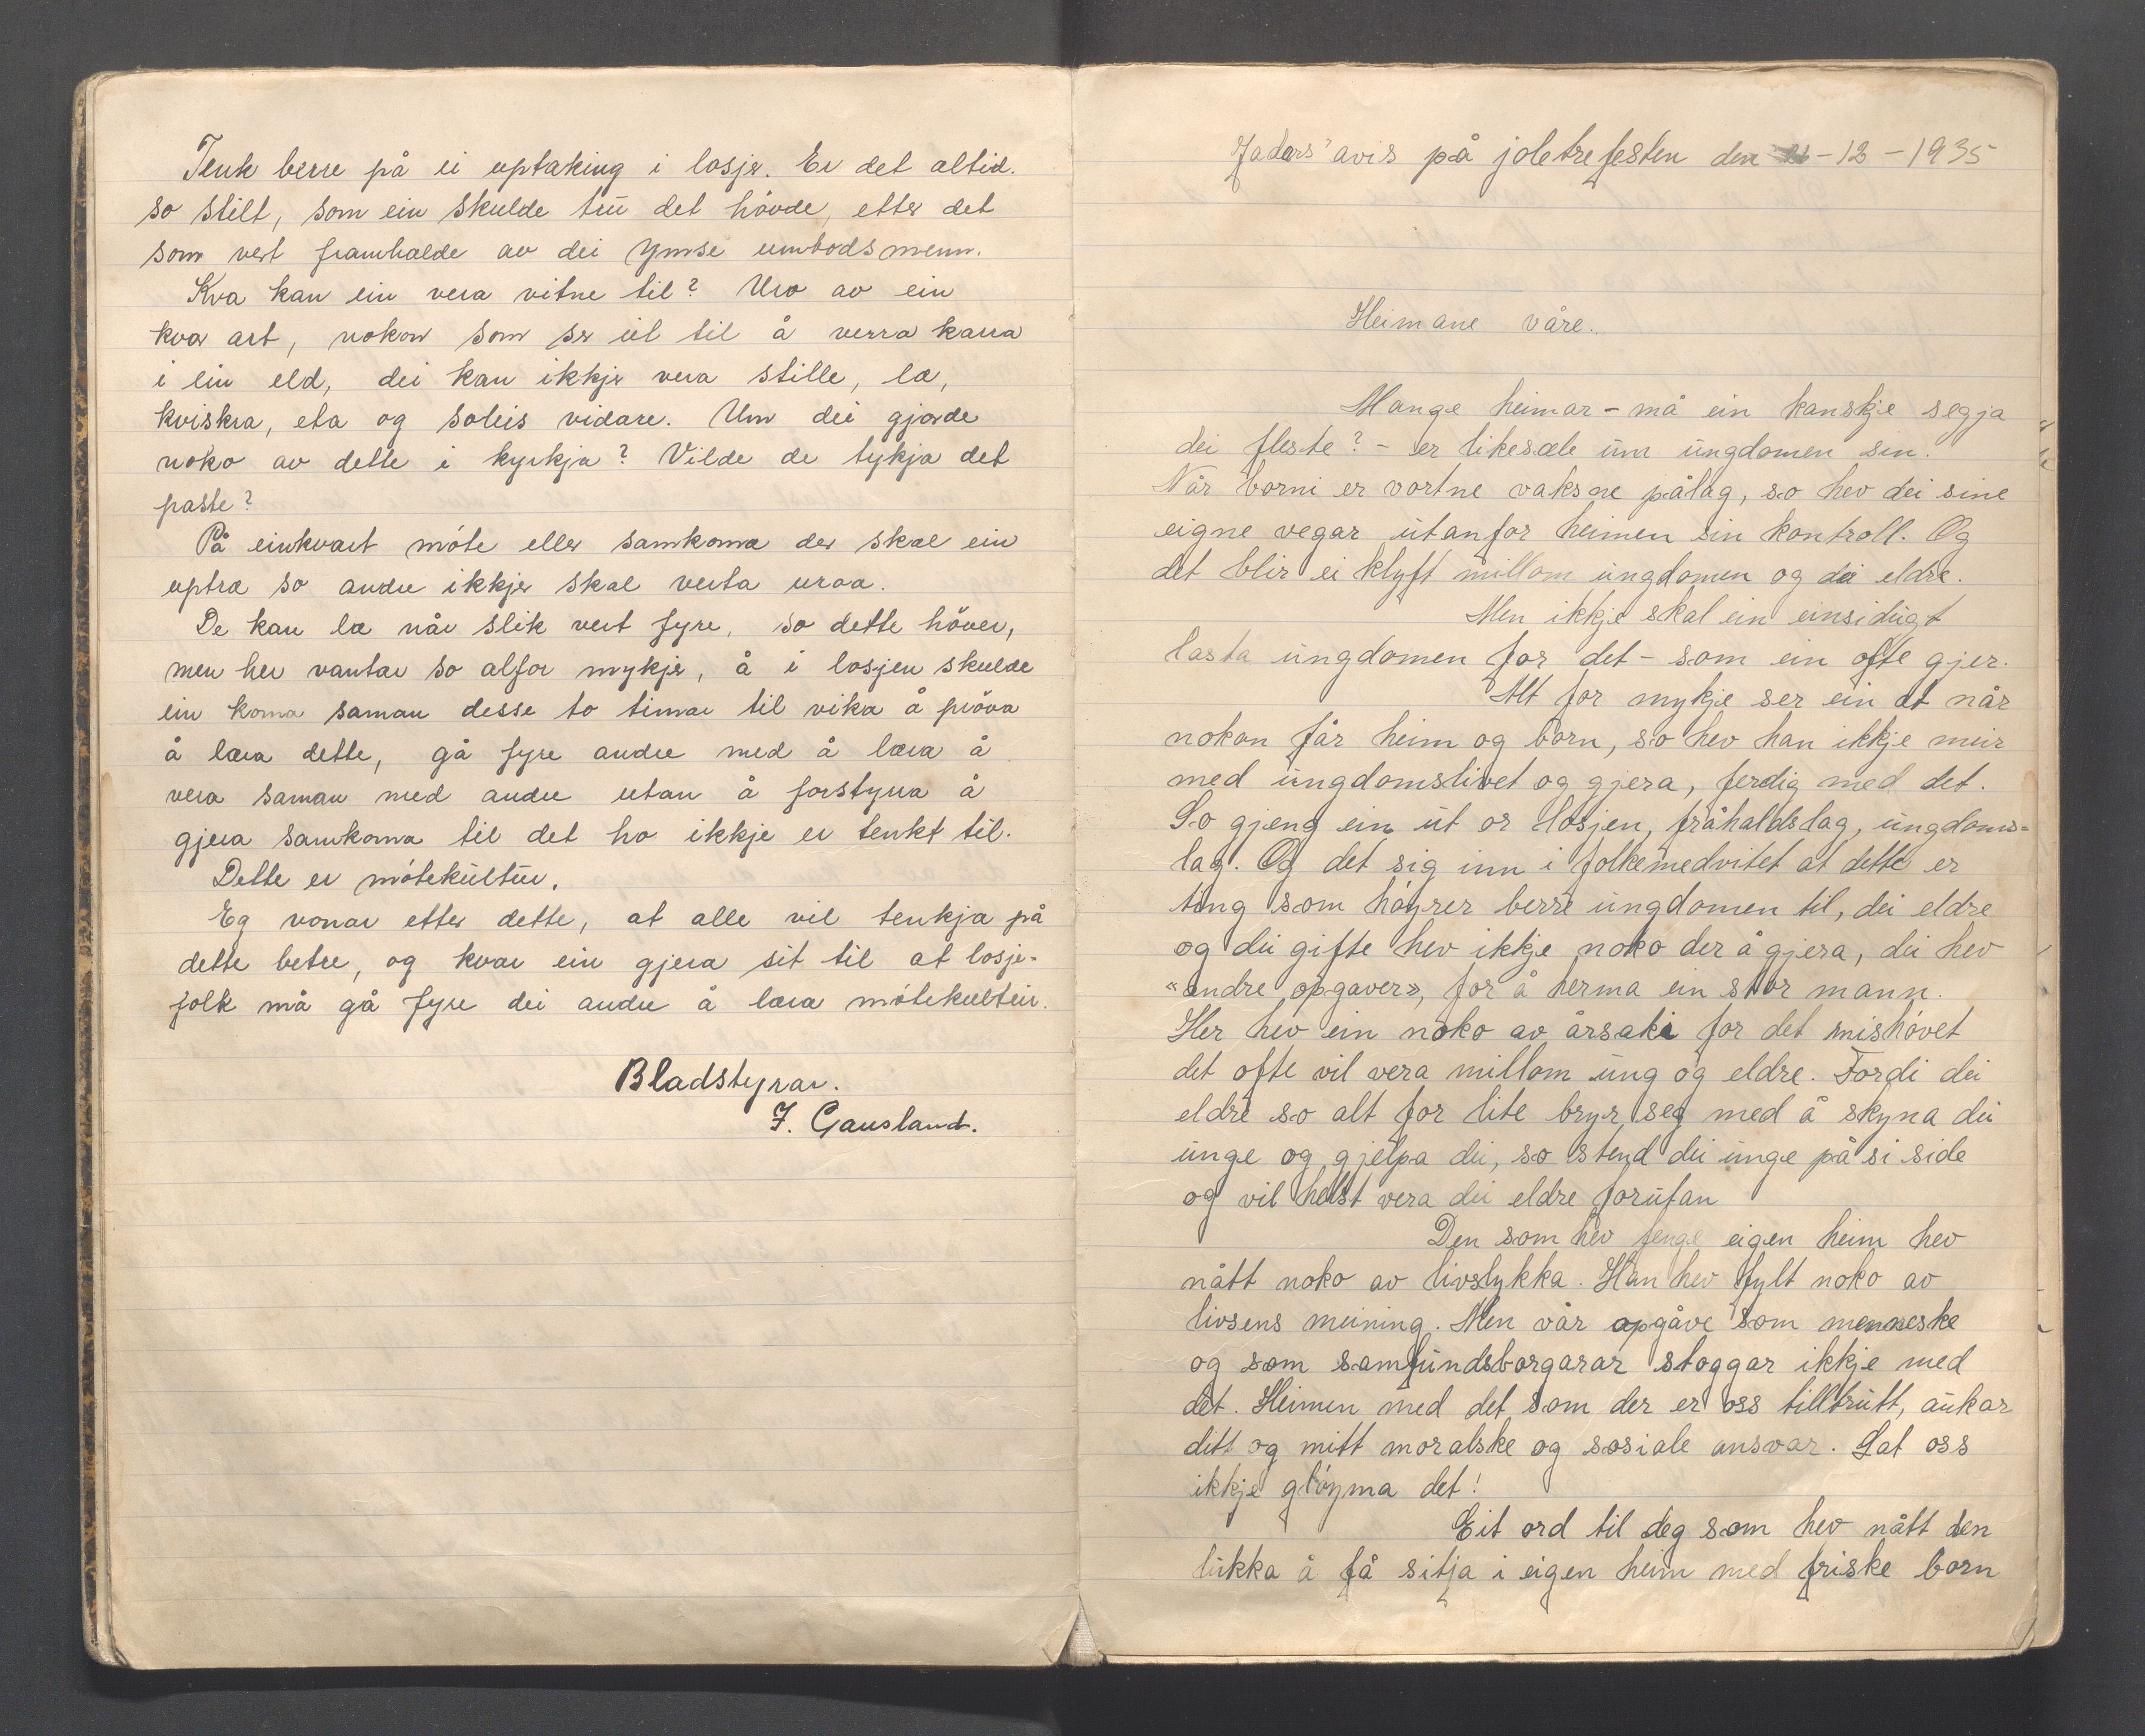 Tenk berre på ei uptaking i losje. Er det altid.
so stilt, som ein skulde tru det hövde, etter det
som vert framhalde av dei ymse umbodsmenn.
Kva kan ein vera vitne til? Uro av ein
kvar art, nokon som ser ut til å verra karra
i ein eld, dei kan ikkje vera stille, læ,
kviskra, eta og soleis vidare. Um dei gjorde
noko av dette i kyrkja? Vilde de tykja det
passte?
På einkvart möte eller samkoma der skal ein
uptræ so andre ikkje skal verta uroa.
De kan læ når slik vert fyre, so dette höver,
men her vantar so alfor mykje, å i losjen skulde
ein koma saman desse to timar til vika å pröva
å læra dette, gå fyre andre med å læra å
vera saman med andre utan å forstyrra å
gjera samkoma til det ho ikkje er tenkt til.
Dette er mötekultur.
Eg vonar etter dette, at alle vil tenkja på
dette betre, og kvar ein gjera sit til at losje-
folk må gå fyre dei andre å læra mötekultur.
Bladstyrar.
J. Gausland.
"Jadars" avis på joletrefesten den -12-1935
Heimane våre.
Mange heimar - må ein kanskje segja
dei fleste? - er likesæle um ungdomen sin.
Når borni er vortne vaksne pålag, so hev dei sine
eigne vegar utanfor heimen sin kontroll. Og
det blir ei klyft millom ungdomen og dei eldre.
Men ikkje skal ein einsidugt
lasta ungdomen for det - som ein ofte gjer.
Alt for mykje ser ein at når
nokon får heim og born, so hev han ikkje meir
med ungdomslivet og gjera, ferdig med det.
So gjeng ein ut or losjen, fråhaldslag, ungdoms=
lag. Og det sig inn i folkemedvitet at dette er
ting som höyrer berre ungdomen til, dei eldre
og dei gifte hev ikkje noko der å gjera, dei hev
«andre opgaver», for å herma ein stor mann.
Her hev ein noko av årsaki for det mishövet
det ofte vil vera millom ung og eldre. Fordi dei
eldre so alt for lite bryr seg med å skyna dei
unge og gjelpa dei, so stend dei unge på si side
og vil helst vera dei eldre forutan
Den som hev fenge eigen heim hev
nått noko av livslykka. Han hev fylt noko av
livsens meining. Men vår opgåve som menneske
og som samfundsborgarar stoggar ikkje med
det. Heimen med det som der er oss tilltrutt, aukar
ditt og mitt moralske og sosiale ansvar. Lat oss
ikkje glöyma det!
Eit ord til deg som hev nått den
lukka å få sitja i eigen heim med friske born